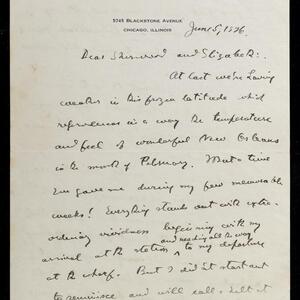 5745 BLACKSTONE AVENUE
CHICAGO, ILLINOIS
June 5, 1926.
Dear Sherwood and Elizabeth:
At last we're having
weather in this frozen latitude which
references in a way the temperature
and feel of wonderful New Orleans
in the month of February. What a time
you gave me during my few memorable
weeks! Everything stands out with extra-
ordinary vividness beginning with my
arrival at the station and ending with my departure
at the wharf. But I didn't start out
to reminisce and will call a halt at